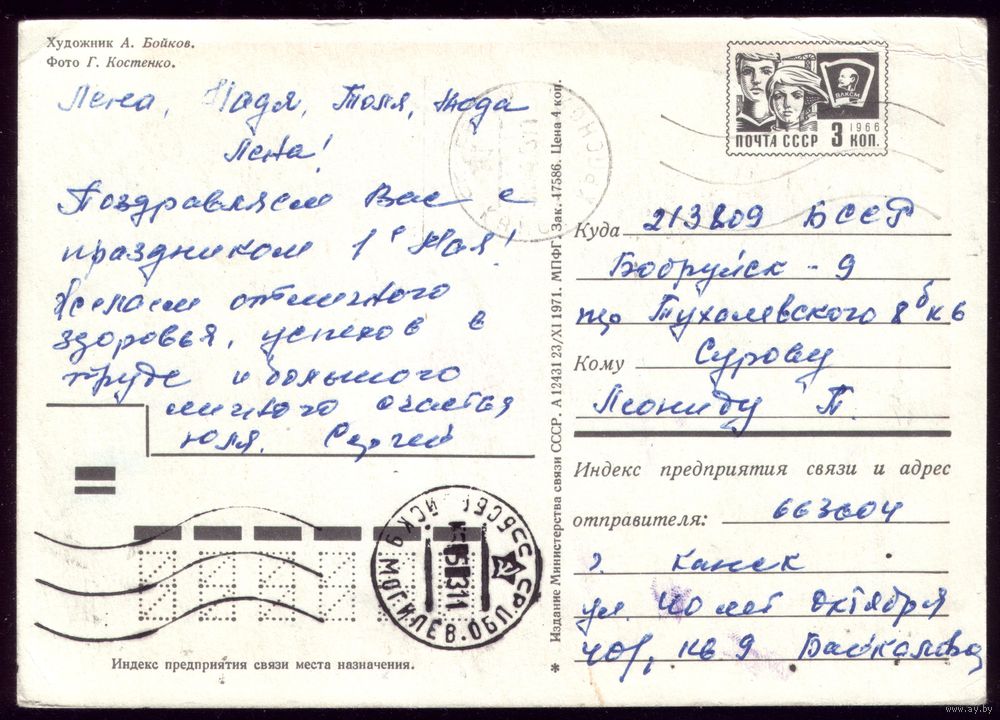 Художник А. Бойков.
Фото Г. Костенко.
Лена, Надя, Толя, 
Лена!
Поздравляем Вас с
праздником 1е Мая!
Желаем отличного
здоровья, успехов в
труде и большого
личного счастья
Юля. Сергей
Индекс предприятия связи места назначения.
Издание Министерства связи СССР. А 12431 23/XI 1971. МПФГ. Зак. 17586. Цена 4 коп.
ВЛКСМ
1966
ПОЧТА СССР 3 КОП.
Куда 213809 БССР
Бобруйск - 9
пер Пухалевского 8б к 6
Кому Сурову
Леониду П.
Индекс предприятия связи и адрес
отправителя: 663604
г. Канск
ул. 40 лет Октября
кв 9
МОГИЛЕВ. ОБЛ.
www.ay.by